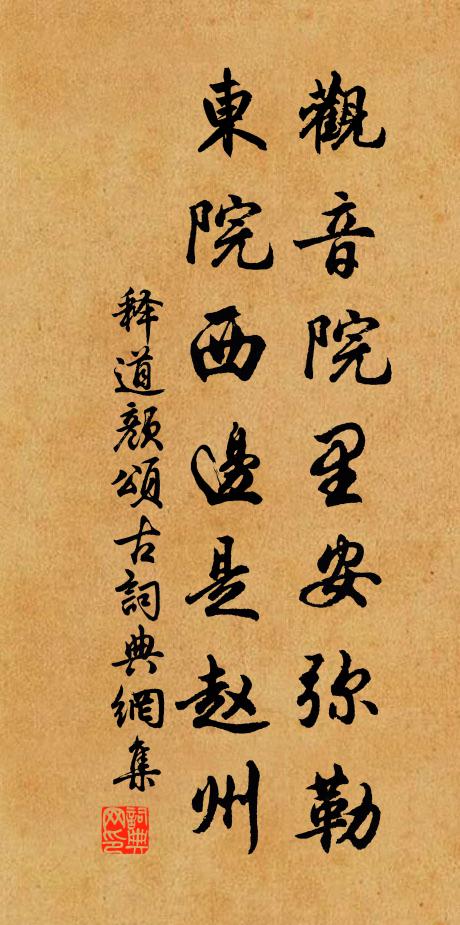 觀音院里安弥勒
東院西邊是赵州
释道颜頌古詞典網集
詞典
网印